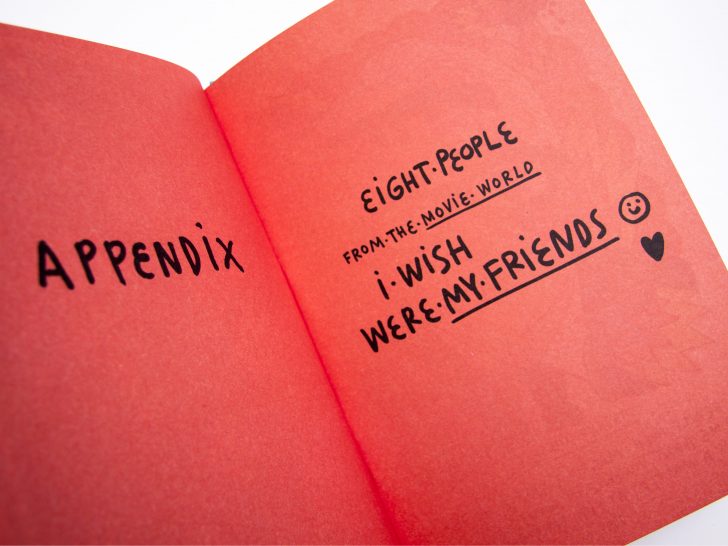 APPENDIX
EiGHT·PEOPLE
FROM·THE·MOViE·WORLD
i·WiSH
WERE·MY·FRiENDS